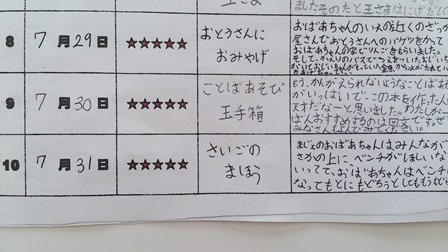 ましたそのたと王さまはにげ
8 7月29日 ★★★★★ おとうさんに おみやげ
おばあちゃんのいえの近くのざっか
屋さんでおとうさんへのバケツをかって
おばあちゃんの家でりんごをもらいました。
9 7月30日 ★★★★★ ことばあそび 玉手箱
もう、かんがえられないようなことばあそび
がいっぱいで、この本を作った人
天才だなーと思いました。わたしが一
ばんおすすめするのは回文です。ぜひ
みなさんもよんでみてください。
10 7月31日 ★★★★★ さいごの まほう
まじょのおばあちゃんはみんなが
さかの上にベンチがほしいな
いってて、おばあちゃんはベンチに
なってもとにもどろうとしてももど